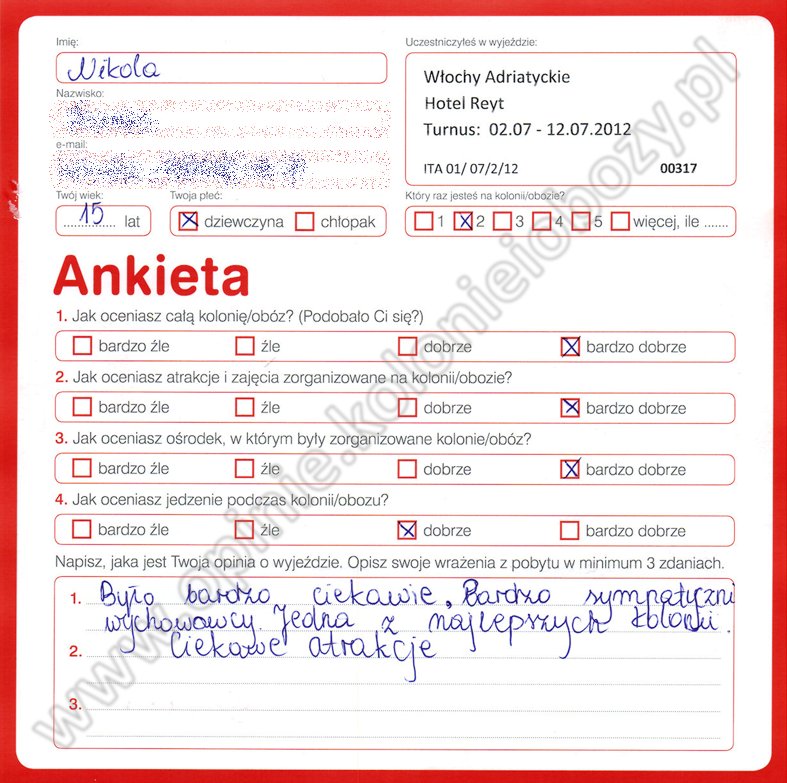 Imię:
Uczestniczyłeś w wyjeździe:
Nikola
Włochy Adriatyckie
Hotel Reyt
Turnus: 02.07 - 12.07.2012
ITA 01/ 07/2/12
00317
Nazwisko:
e-mail:
Twój wiek:
15 lat
Twoja płeć:
dziewczyna
chłopak
Który raz jesteś na kolonii/obozie?
1 2 3 4 5 więcej, ile .......
Ankieta
1. Jak oceniasz całą kolonię/obóz? (Podobało Ci się?)
bardzo źle źle dobrze bardzo dobrze
2. Jak oceniasz atrakcje i zajęcia zorganizowane na kolonii/obozie?
bardzo źle źle dobrze bardzo dobrze
3. Jak oceniasz ośrodek, w którym były zorganizowane kolonie/obóz?
bardzo źle źle dobrze bardzo dobrze
4. Jak oceniasz jedzenie podczas kolonii/obozu?
bardzo źle źle dobrze bardzo dobrze
Napisz, jaka jest Twoja opinia o wyjeździe. Opisz swoje wrażenia z pobytu w minimum 3 zdaniach.
1. Było bardzo ciekawie, Bardzo sympatyczni
wychowawcy. Jedna z najlepszych kolonii.
2. Ciekawe atrakcje
3.
www.opinie.kolonieiobozy.pl